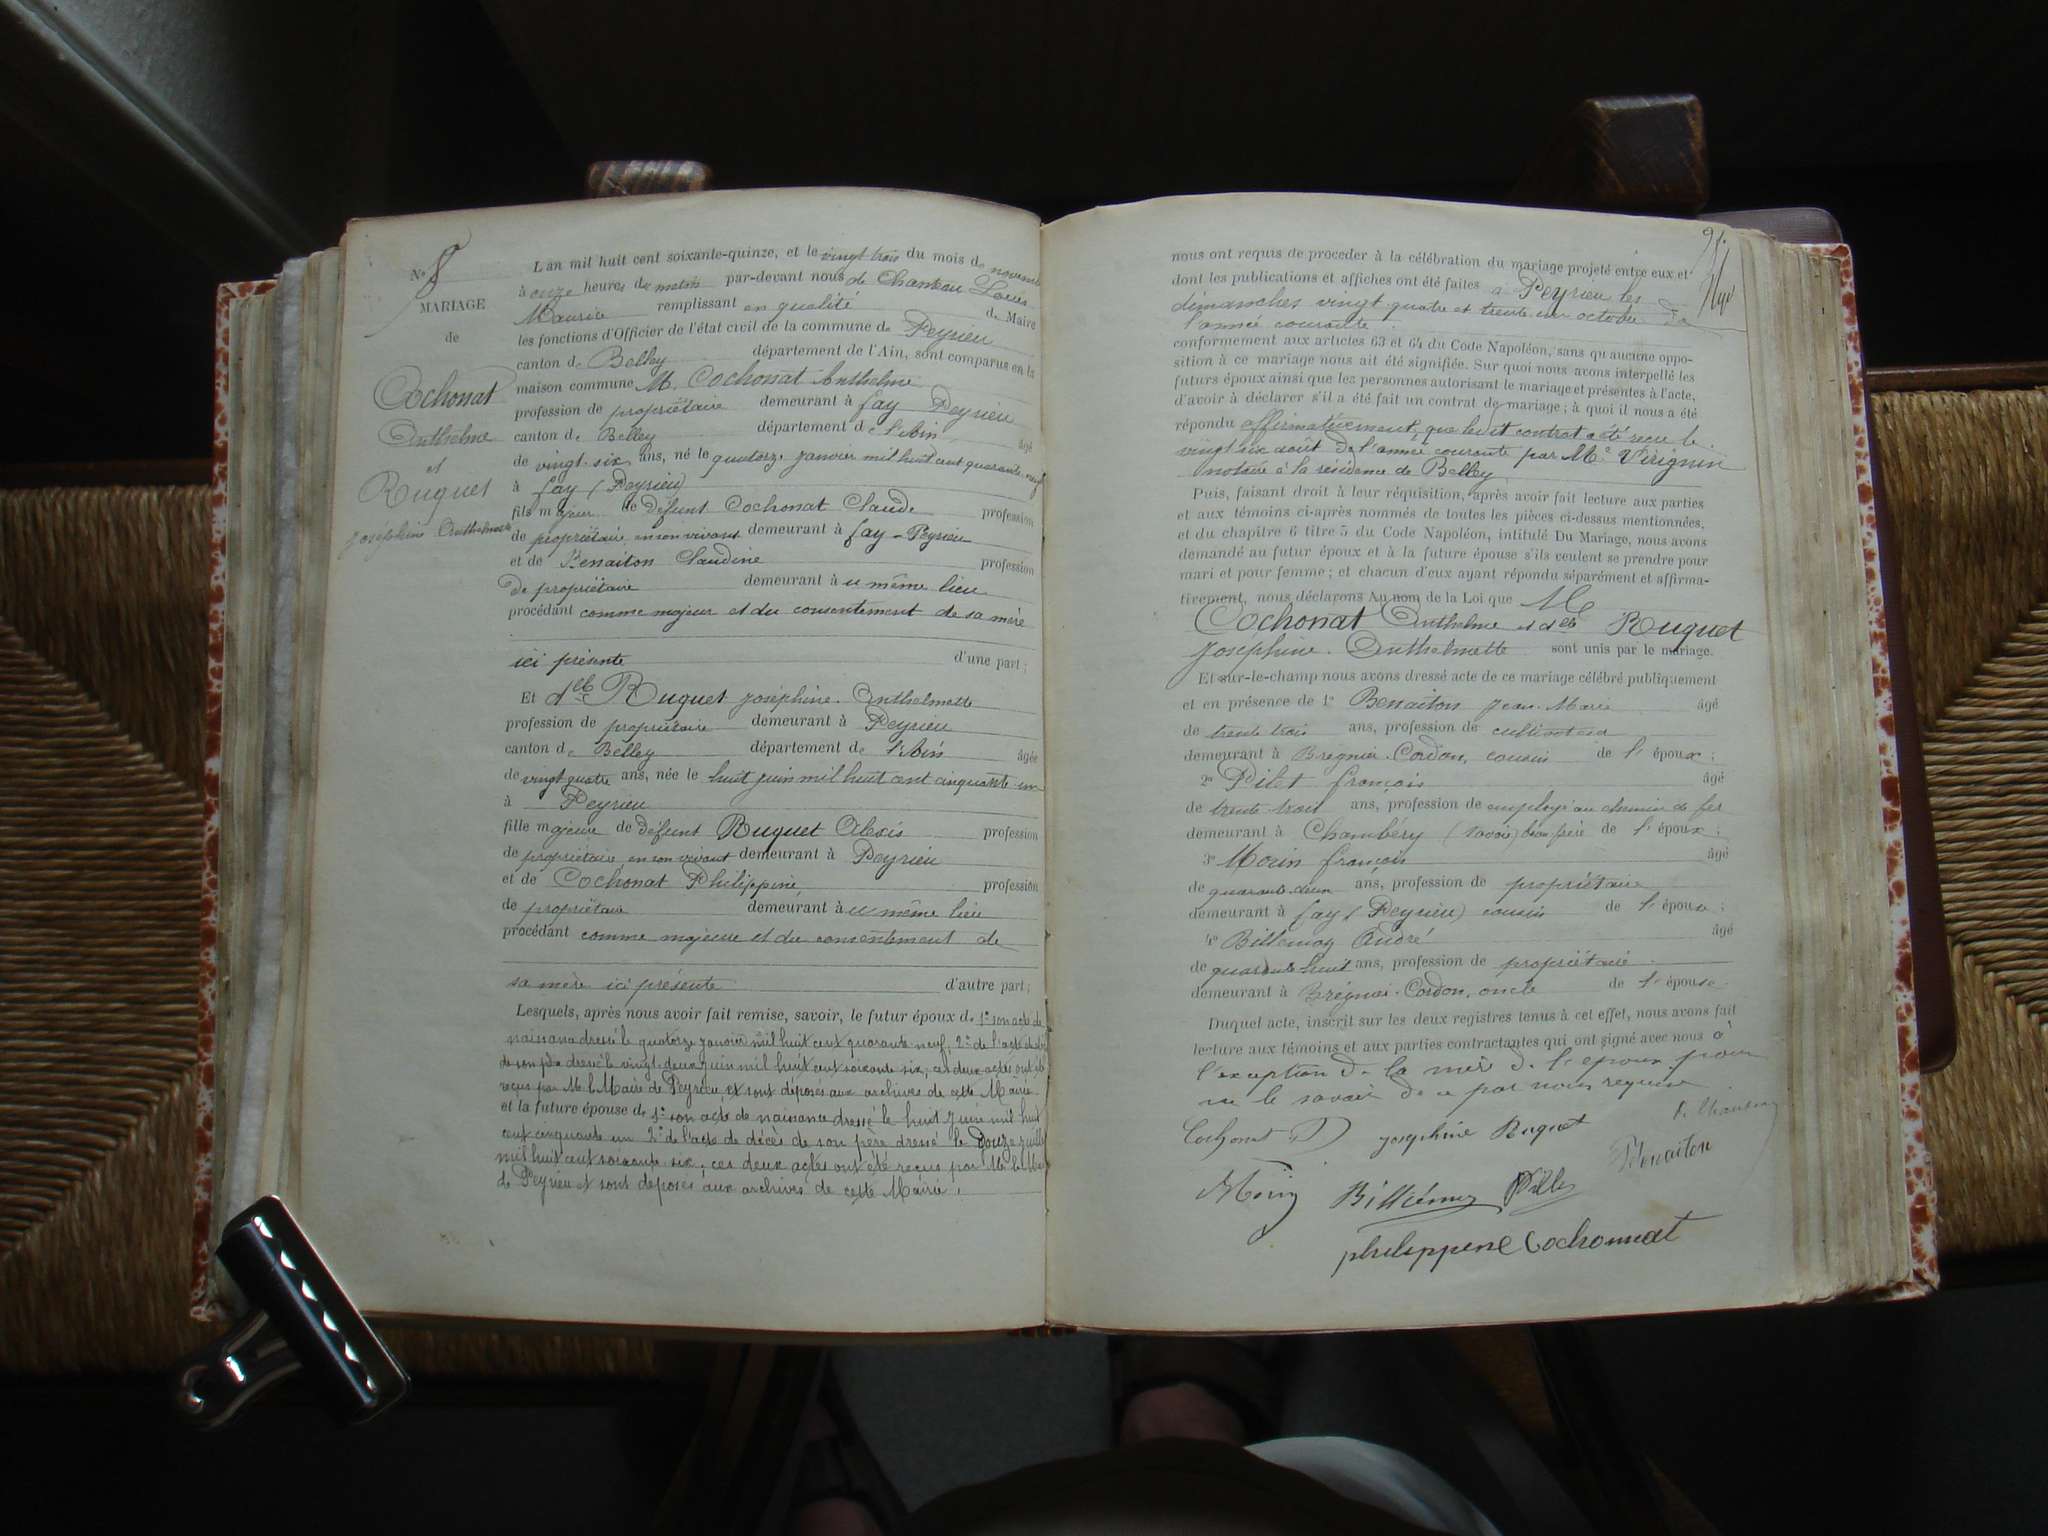 N° 8
MARIAGE
de
Cochonat
Anthelme
et
Ruquet
Joséphine Anthelmette
L'an mil huit cent soixante-quinze, et le vingt trois du mois de novembre
à onze heures du matin par-devant nous de Chanteau Louis
Maurice remplissant en qualité de Maire
les fonctions d'Officier de l'état civil de la commune de Peyrieu
canton de Belley département de l'Ain, sont comparus en la
maison commune M. Cochonat Anthelme
profession de propriétaire demeurant à fay Peyrieu
canton de Belley département de l'Ain âgé
de vingt-six ans, né le quatorze janvier mil huit cent quarante-neuf
à fay (Peyrieu)
fils majeur de défunt Cochonat Claude profession
de propriétaire, en son vivant demeurant à fay-Peyrieu
et de Benaiton Claudine profession
de propriétaire demeurant à u même lieu
procédant comme majeur et du consentement de sa mère
ici présente d'une part;
Et dlle Ruquet Joséphine-Anthelmette
profession de propriétaire demeurant à Peyrieu
canton de Belley département de l'Ain âgée
de vingt quatre ans, née le huit juin mil huit cent cinquante un
à Peyrieu
fille majeure de défunt Ruquet Alexis profession
de propriétaire, en son vivant demeurant à Peyrieu
et de Cochonat Philippine, profession
de propriétaire demeurant à u même lieu
procédant comme majeure et du consentement de
sa mère ici présente d'autre part;
Lesquels, après nous avoir fait remise, savoir, le futur époux de 1° son acte de
naissance dressé le quatorze janvier mil huit cent quarante neuf; 2° de l'acte de décès
de son père dressé le vingt-deux juin mil huit cent soixante six; ces deux actes ont été
reçus par M. le Maire de Peyrieu, et sont déposés aux archives de cette Mairie.
et la future épouse de 1° son acte de naissance dressé le huit juin mil huit
cent cinquante un 2° de l'acte de décès de son père dressé le douze juillet
mil huit cent soixante six; ces deux actes ont été reçus par M. le Maire
de Peyrieu et sont déposés aux archives de cette Mairie.
91.
nous ont requis de procéder à la célébration du mariage projeté entre eux et
dont les publications et affiches ont été faites à Peyrieu les
dimanches vingt quatre et trente un octobre de
l'année courante
conformement aux articles 63 et 64 du Code Napoléon, sans qu'aucune oppo-
sition à ce mariage nous ait été signifiée. Sur quoi nous avons interpellé les
futurs époux ainsi que les personnes autorisant le mariage et présentes à l'acte,
d'avoir à déclarer s'il a été fait un contrat de mariage; à quoi il nous a été
répondu affirmativement, que ledit contrat a été reçu le
vingt six août de l'année courante par Me Virignin
notaire à la résidence de Belley
Puis, faisant droit à leur réquisition, après avoir fait lecture aux parties
et aux témoins ci-après nommés de toutes les pièces ci-dessus mentionnées,
et du chapitre 6 titre 5 du Code Napoléon, intitulé Du Mariage, nous avons
demandé au futur époux et à la future épouse s'ils veulent se prendre pour
mari et pour femme; et chacun d'eux ayant répondu séparément et affirma-
tivement, nous déclarons Au nom de la Loi que M
Cochonat Anthelme et dlle Ruquet
Joséphine-Anthelmette sont unis par le mariage.
Et sur-le-champ nous avons dressé acte de ce mariage célébré publiquement
et en présence de 1° Benaiton Jean-Marie âgé
de trente trois ans, profession de cultivateur
demeurant à Brégnier-Cordon, cousin de l'époux;
2° Pilet françois âgé
de trente-trois ans, profession de employé au chemin de fer
demeurant à Chambéry (Savoie) beau frère de l'époux;
3° Morin françois âgé
de quarante-deux ans, profession de propriétaire
demeurant à fay (Peyrieu) cousin de l'époux;
4° Billemaz André âgé
de quarante huit ans, profession de propriétaire
demeurant à Brégnier-Cordon, oncle de l'épouse
Duquel acte, inscrit sur les deux registres tenus à cet effet, nous avons fait
lecture aux témoins et aux parties contractantes qui ont signé avec nous à
l'exception de la mère de l'époux pour
ne le savoir de ce par nous requise
Cochonat Joséphine Ruquet
Benaiton
Morin
philippene Cochonnat